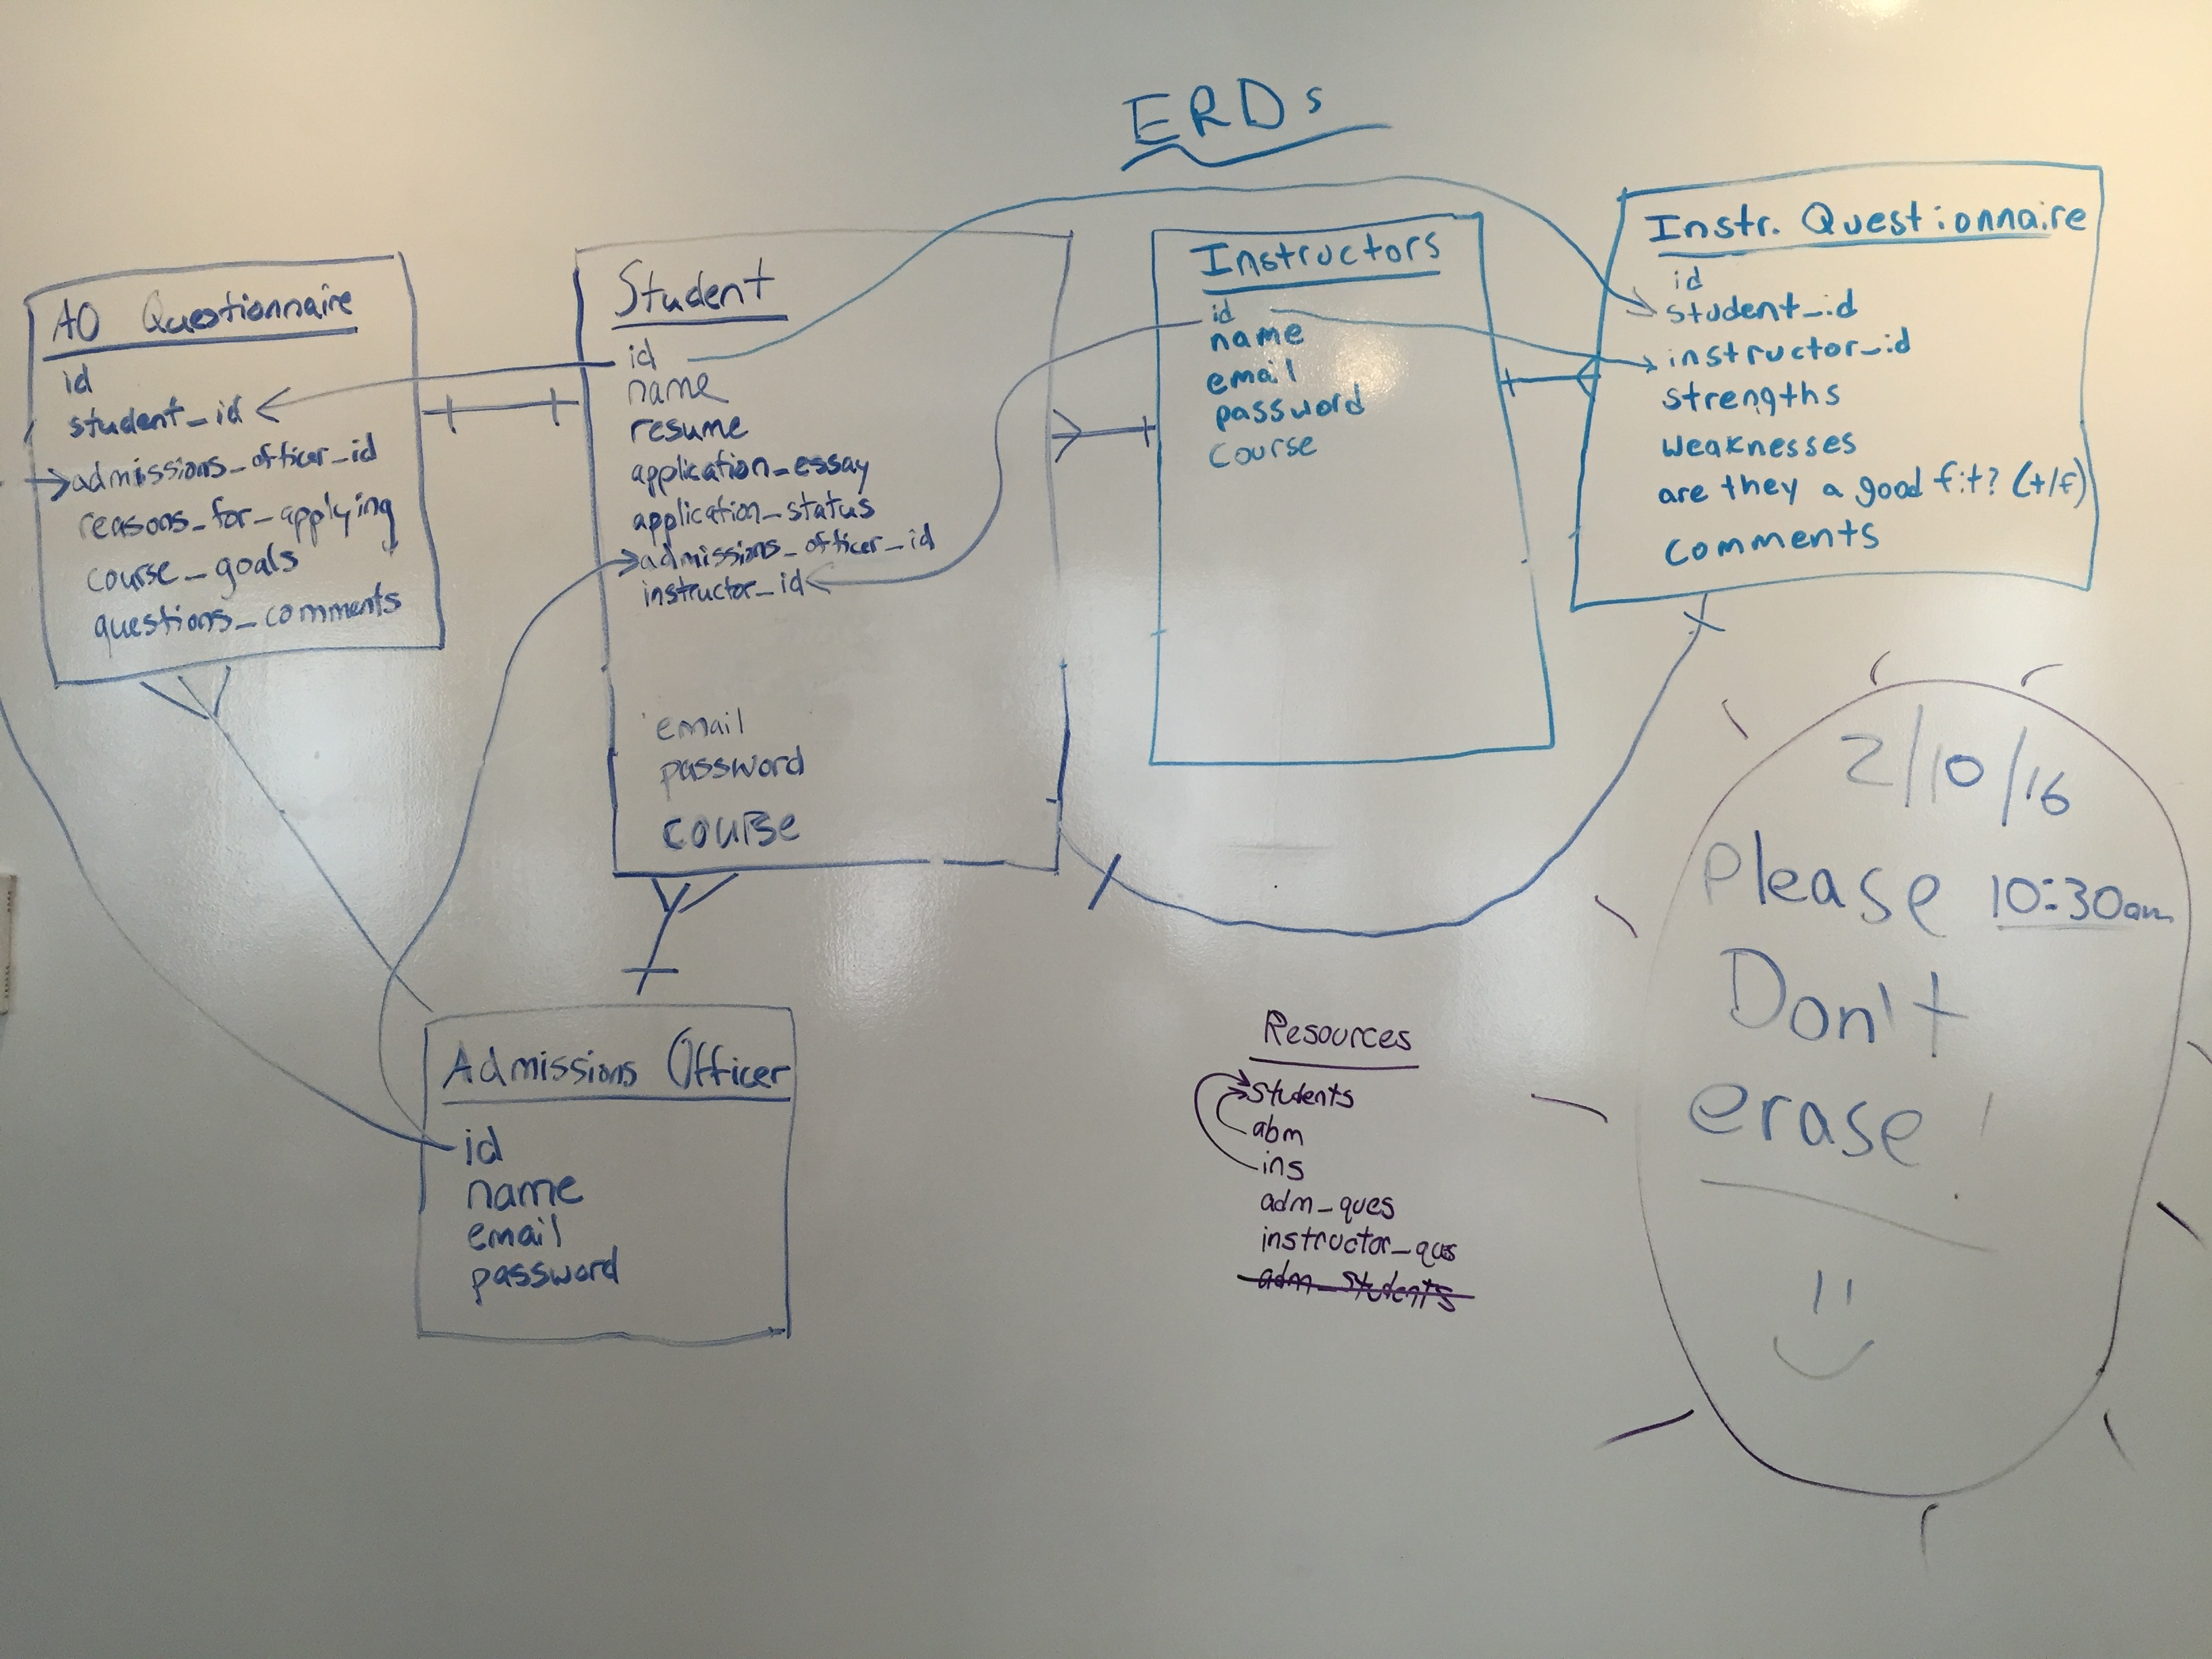 ERDs
AO Questionnaire
id
student_id
admissions_officer_id
reasons_for_applying
course_goals
questions_comments
Student
id
name
resume
application_essay
application_status
admissions_officer_id
instructor_id
email
password
course
Instructors
id
name
email
password
course
Instr. Questionnaire
id
student_id
instructor_id
strengths
weaknesses
are they a good fit? (t/f)
comments
Admissions Officer
id
name
email
password
Resources
students
abm
ins
adm_ques
instructor_qus
adm_students
2/10/16
Please 10:30am
Don't
erase!